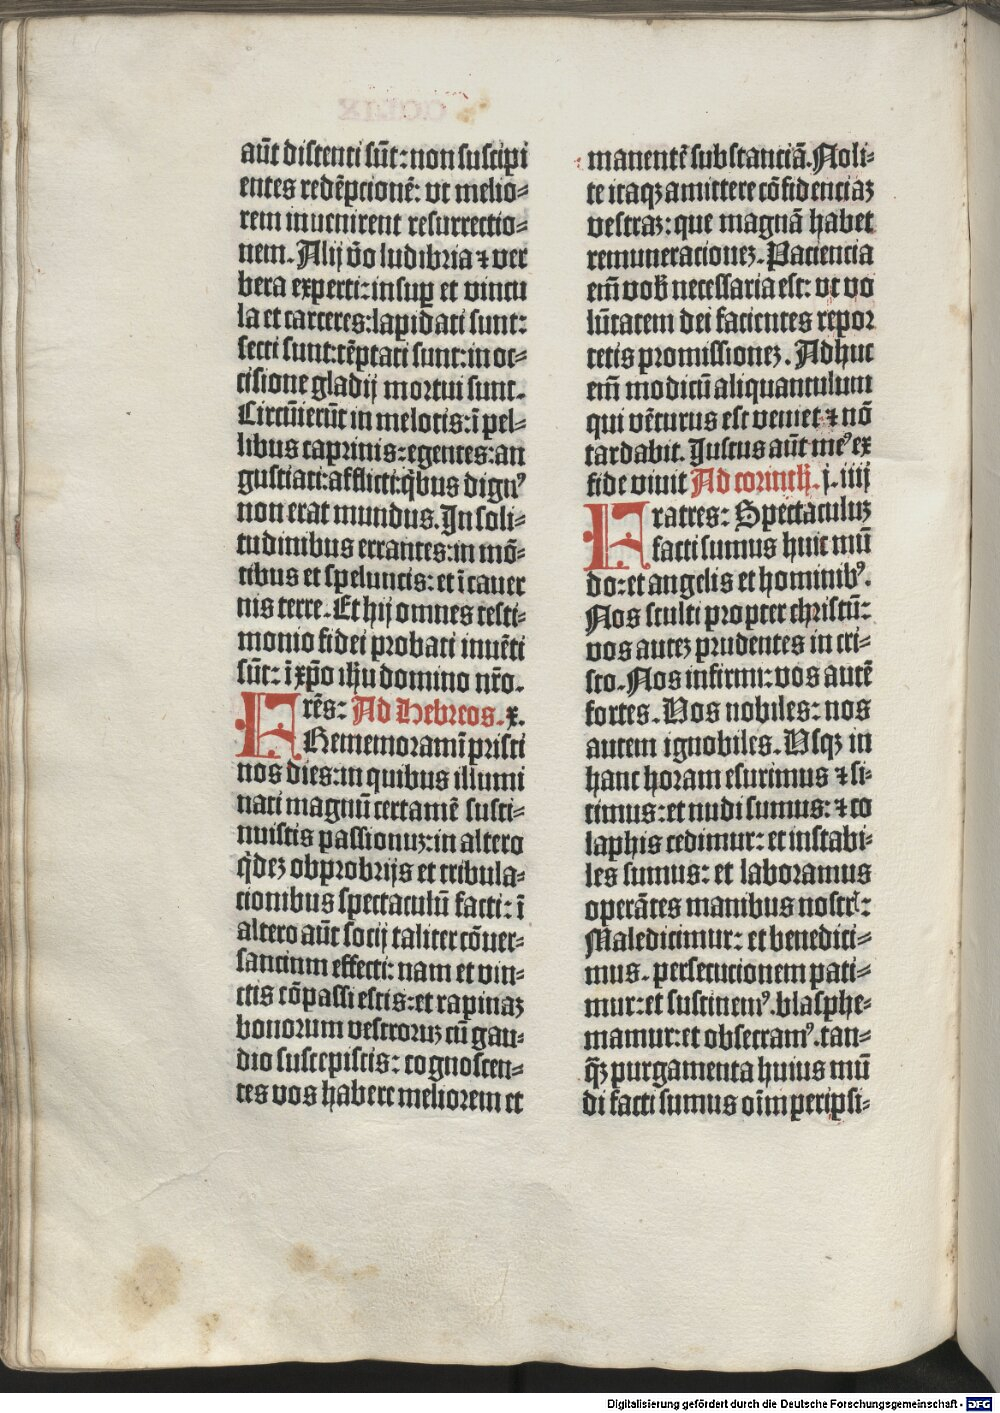 aūt distenti sūt: non suscipi
entes redēpcionē: vt melio⸗
rem inuenirent resurrectio⸗
nem. Alij v̄o ludibria ⁊ ver
bera experti: insuꝑ et vincu
la et carceres: lapidati sunt:
secti sunt: tēptati sunt: in oc⸗
cisione gladij mortui sunt.
Circūierūt in melotis: ī pel⸗
libus caprinis: egentes: an
gustiati: afflicti: q̄bus dignꝰ
non erat mundus. In soli⸗
tudinibus errantes: in mō⸗
tibus et speluncis: et ī cauer
nis terre. Et hij omnes testi⸗
monio fidei probati inuēti
sūt: ī xp̄o ih̄u domino nr̄o.
Frēs: Ad Hebreos. x.
Rememoramī pristi
nos dies: in quibus illumi
nati magnū certamē susti⸗
nuistis passionuꝫ: in altero
q̄dēꝫ obprobrijs et tribula⸗
cionibus spectaculū facti: ī
altero aūt socij taliter cōuer⸗
sancium effecti: nam et vin⸗
ctis cōpassi estis: et rapinaꝫ
bonorum vestroruꝫ cū gau⸗
dio suscepistis: cognoscen⸗
tes vos habere meliorem et
manentē substanciā. Noli⸗
te itaqꝫ amittere cōfidenciaꝫ
vestraꝫ: que magnā habet
remuneracioneꝫ. Paciencia
em̄ vob̄ necessaria est: vt vo
lūtatem dei facientes repor
tetis promissioneꝫ. Adhuc
em̄ modicū aliquantulum
qui vēturus est veniet ⁊ nō
tardabit. Justus aūt meꝰ ex
fide viuit Ad corinth. j. iiij
Fratres: Spectaculuꝫ
facti sumus huic mū
do: et angelis et hominibꝰ.
Nos stulti propter christū:
vos auteꝫ prudentes in cri⸗
sto. Nos infirmi: vos autē
fortes. Vos nobiles: nos
autem ignobiles. Vsqꝫ in
hanc horam esurimus ⁊ si⸗
timus: et nudi sumus: ⁊ co
laphis cedimur: et instabi⸗
les sumus: et laboramus
operātes manibus nostrꝭ:
Maledicimur: et benedici⸗
mus. persecucionem pati⸗
mur: et sustinemꝰ. blasphe⸗
mamur: et obsecramꝰ. tan⸗
q̄ꝫ purgamenta huius mū
di facti sumus oīm peripsi⸗
Digitalisierung gefördert durch die Deutsche Forschungsgemeinschaft - DFG